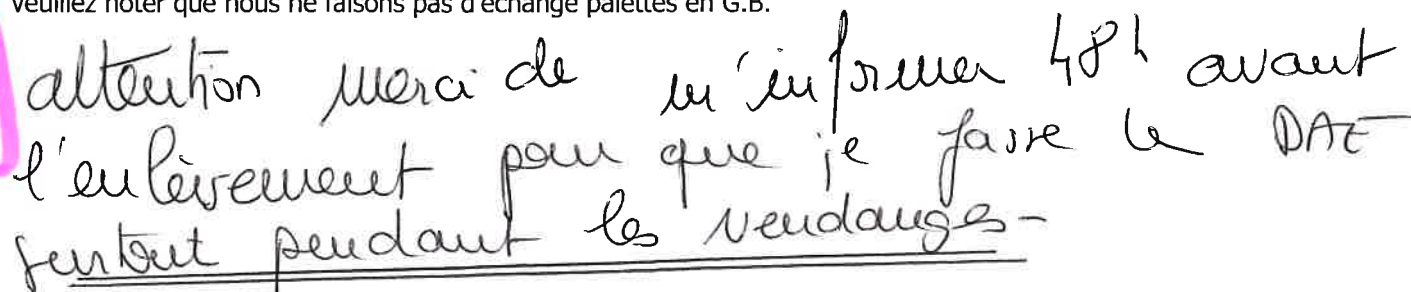 Veuillez noter que nous ne faisons pas d'échange palettes en G.B.
attention merci de m'informer 48h avant
l'enlèvement pour que je fasse le DAE
surtout pendant les vendanges-